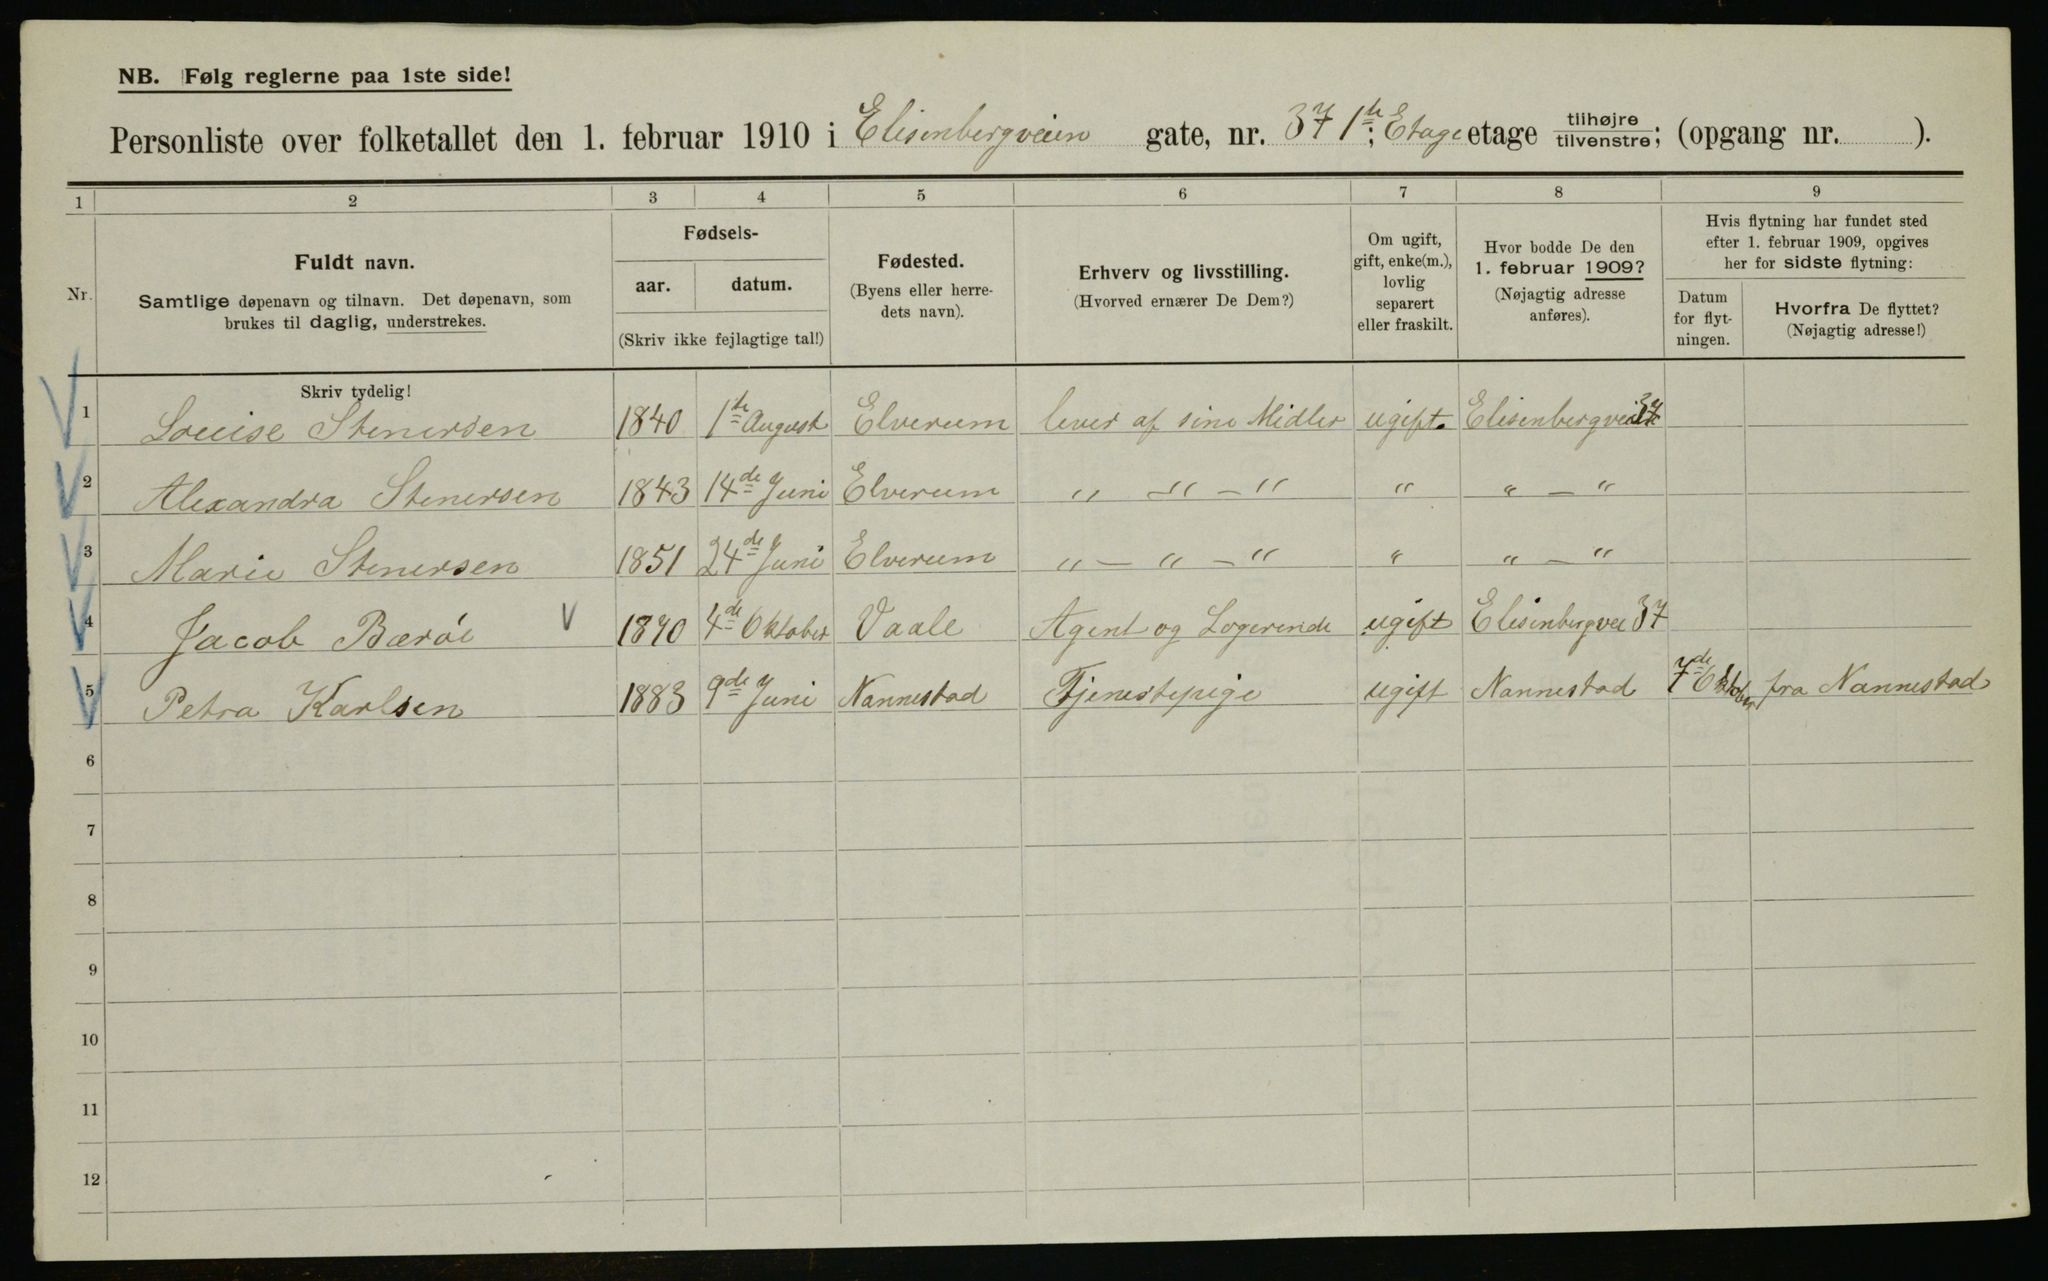 NB. Følg reglerne paa 1ste side!
Personliste over folketallet den 1. februar 1910 i Elisenbergveien gate, nr. 37 1ste; Etage etage tilhøjre tilvenstre; (opgang nr. ).
1 2 3 4 5 6 7 8 9
Nr. Fuldt navn. Samtlige døpenavn og tilnavn. Det døpenavn, som brukes til daglig, understrekes.
Fødsels- aar. datum. (Skriv ikke fejlagtige tal!)
Fødested. (Byens eller herredets navn).
Erhverv og livsstilling. (Hvorved ernærer De Dem?)
Om ugift, gift, enke(m.), lovlig separert eller fraskilt.
Hvor bodde De den 1. februar 1909? (Nøjagtig adresse anføres).
Hvis flytning har fundet sted efter 1. februar 1909, opgives her for sidste flytning:
Datum for flytningen. Hvorfra De flyttet? (Nøjagtig adresse!)
Skriv tydelig!
1 Louise Stenersen 1840 1te August Elverum lever af sine Midler ugift. Elisenbergvei 37
2 Alexandra Stenersen 1843 14de Juni Elverum " -" - " " " - "
3 Marie Stenersen 1851 24de Juni Elverum " - " - " " " - "
4 Jacob Bærøe V 1870 4de Oktober Vaale Agent og Logerende ugift Elisenbergvei 37
5 Petra Karlsen 1883 9de Juni Nannestad Tjenestepige ugift Nannestad 7de Oktober fra Nannestad
6
7
8
9
10
11
12